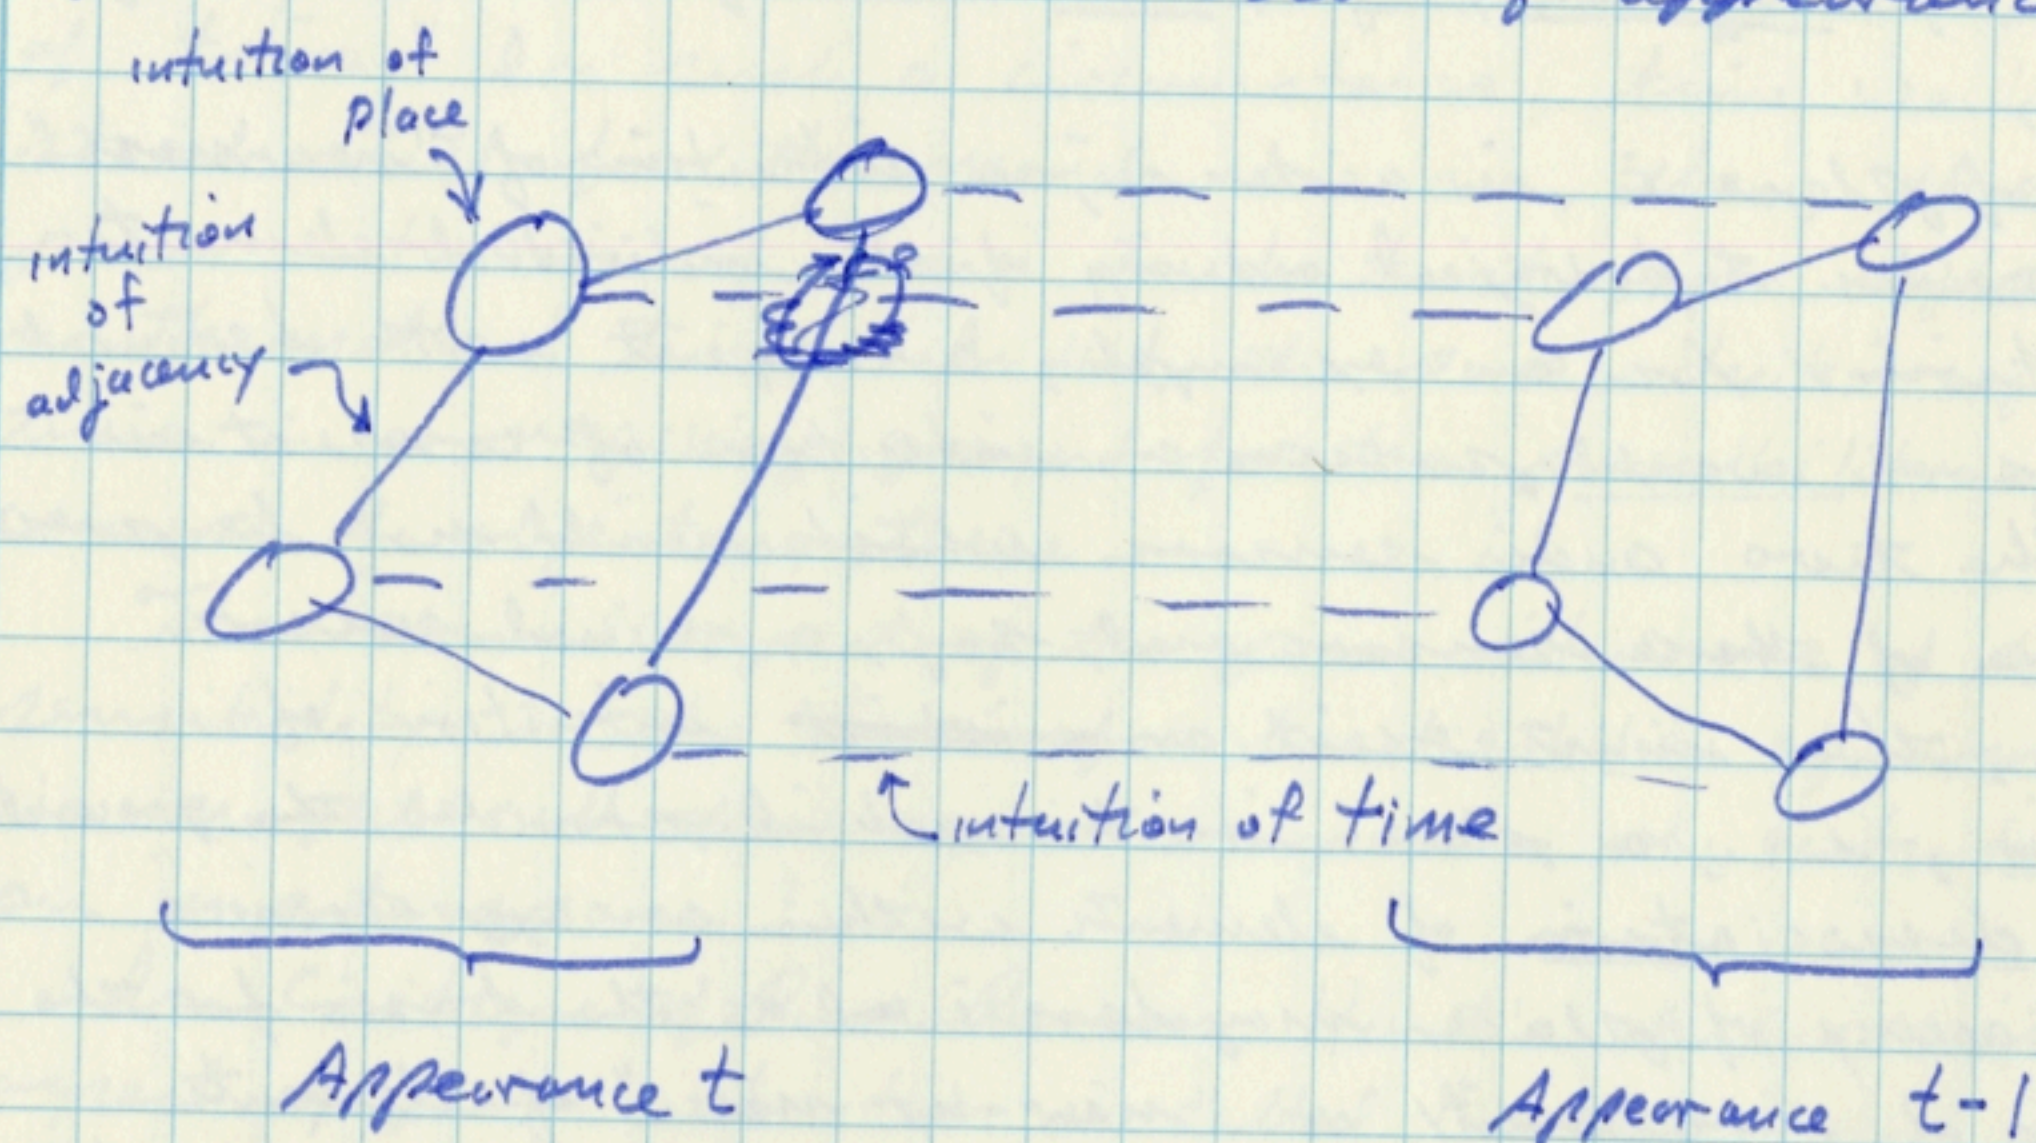 of appearance
intuition of
place
intuition
of
adjacency
intuition of time
Appearance t
Appearance t-1